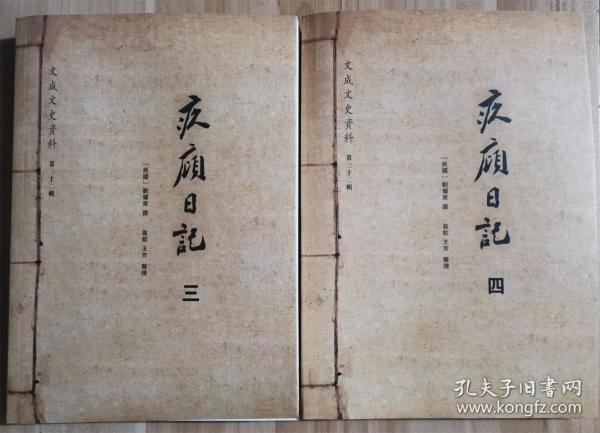 文成文史資料
疚廎日記
三
〔民國〕劉耀東 撰
王芳 整理
文成文史資料
疚廎日記
四
〔民國〕劉耀東 撰
王芳 整理
孔夫子旧书网
www.kongfz.com